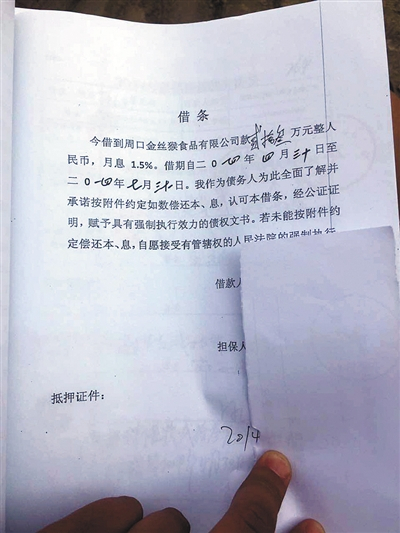 借 条
今借到周口金丝猴食品有限公司款贰拾叁万元整人
民币，月息 1.5%。借期自二0一四年四月三十日至
二0一四年七月三十日。我作为债务人为此全面了解并
承诺按附件约定如数偿还本、息，认可本借条，经公证证
明，赋予具有强制执行效力的债权文书。若未能按附件约
定偿还本、息，自愿接受有管辖权的人民法院的强制执行
借款人
担保人
抵押证件：
2014